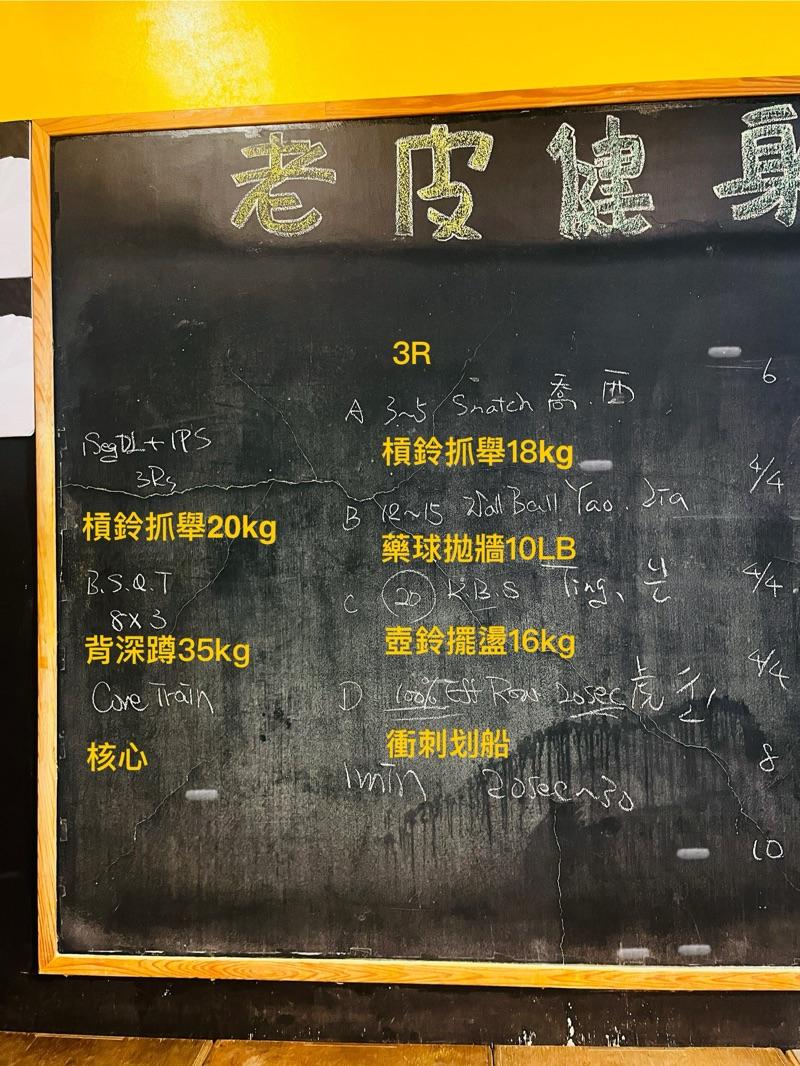 老皮健身
3R
A 3~5 Snatch 喬.西
槓鈴抓舉18kg
B 12~15 Wall Ball Yao.Jia
藥球拋牆10LB
C 20 K.B.S Ting、
壺鈴擺盪16kg
D 100% Eff Row 20sec 虎
衝刺划船
1min 20sec~30
1SegDL+1PS
3Rs
槓鈴抓舉20kg
B.S.Q.T
8X3
背深蹲35kg
Core Train
核心
6
4/4
4/4.
4/4
8
10